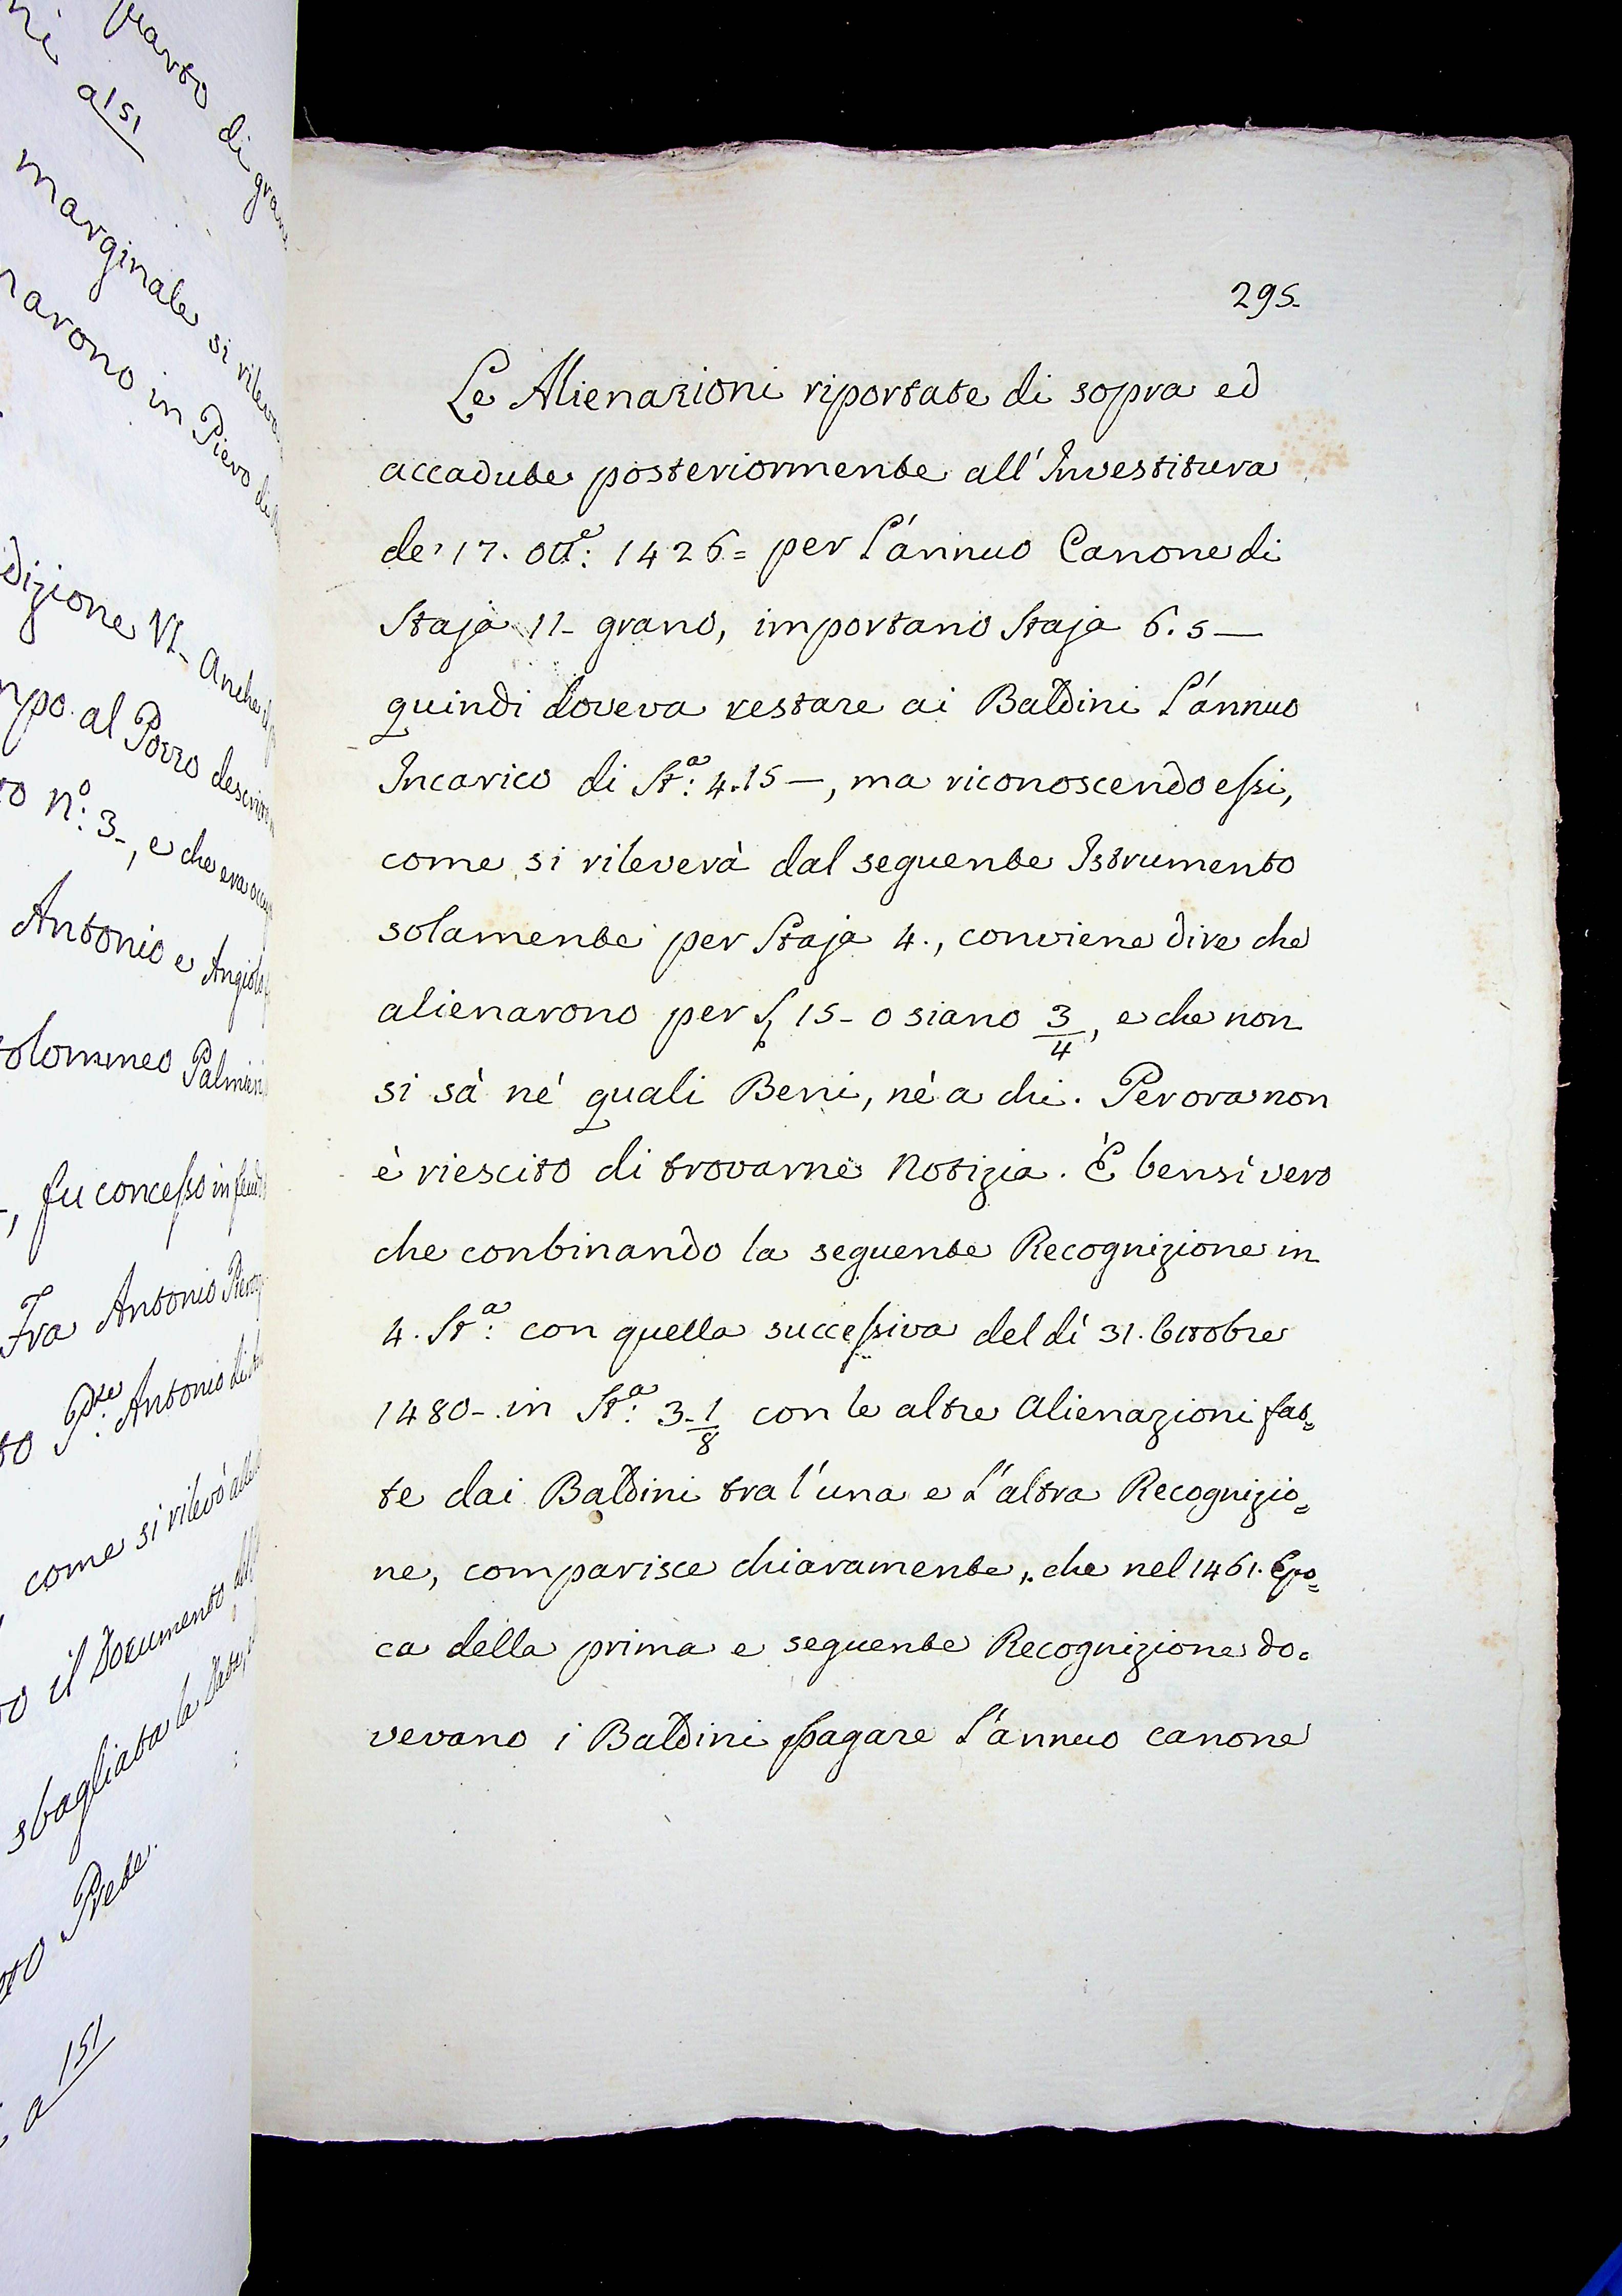 parto di gran
ni
a 151
marginale si rileva
narono in Pieve di
dizione VI- Anche il
mpo al Pozzo descritto
to N.º 3-, e che era
Antonio e Angiolo
tolommeo Palmieri
-, fu concesso in feudo
Fra Antonio
to P. Antonio di
, come si rilevò
to il Documento,
sbagliata la Data,
tto Prete.
, a 151
295.
Le Alienazioni riportate di sopra ed
accadute posteriormente all'Investitura
de' 17. Ott.e: 1426= per l'annuo Canone di
Staja 11- grano, importano Staja 6.5—
quindi doveva restare ai Baldini l'annuo
Incarico di St.a: 4.15—, ma riconoscendo essi,
come si rileverà dal seguente Istrumento
solamente per Staja 4., conviene dire che
alienarono per £ 15- o siano 3/4, e che non
si sà né quali Beni, nè a chi. Per ora non
è riescito di trovarne Notizia. È bensì vero
che conbinando la seguente Recognizione in
4. St.a: con quella successiva del dì 31. Ottobre
1480-. in St.a: 3-1/8 con le altre Alienazioni fat=
te dai Baldini tra l'una e l'altra Recognizio=
ne, comparisce chiaramente, che nel 1461. Epo=
ca della prima e seguente Recognizione do=
vevano i Baldini pagare l'annuo canone